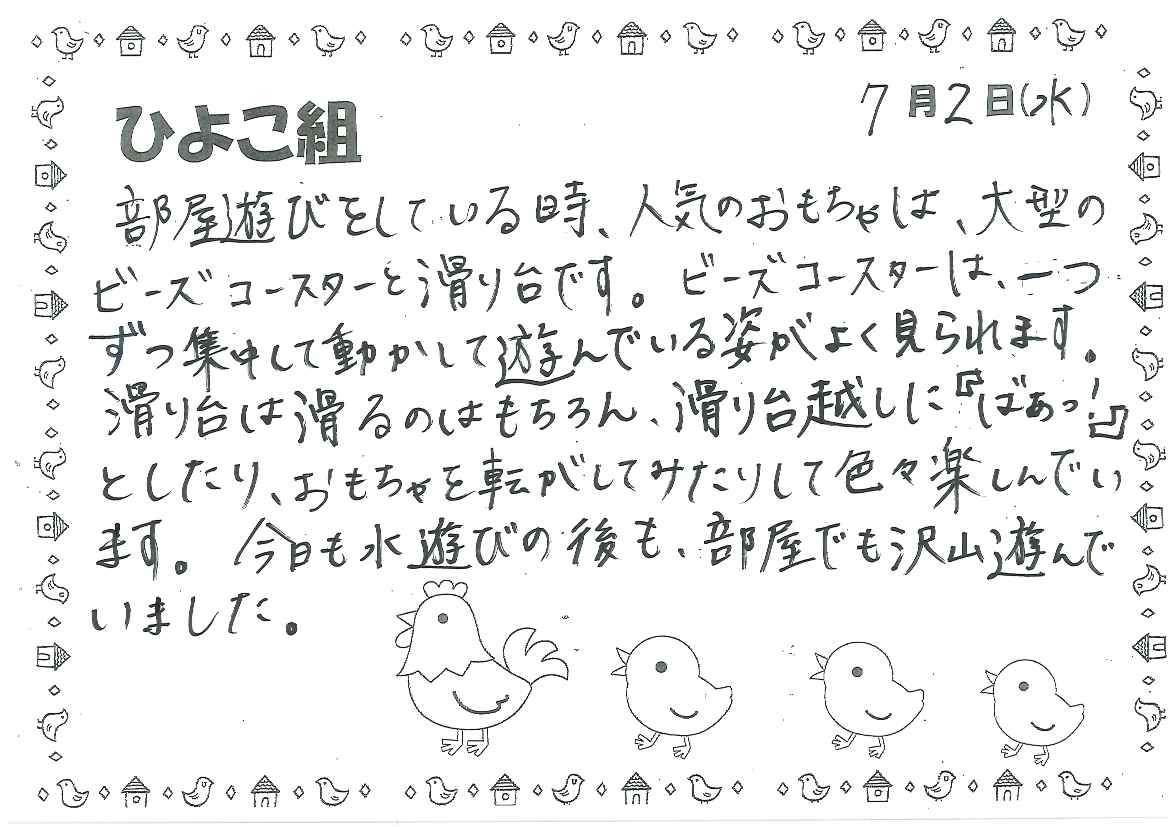 ひよこ組
7月2日(水)
部屋遊びをしている時、人気のおもちゃは、大型の
ビーズコースターと滑り台です。ビーズコースターは、一つ
ずつ集中して動かして遊んでいる姿がよく見られます。
滑り台は滑るのはもちろん、滑り台越しに『ばぁっ!』
としたり、おもちゃを転がしてみたりして色々楽しんでい
ます。今日も水遊びの後も、部屋でも沢山遊んで
いました。